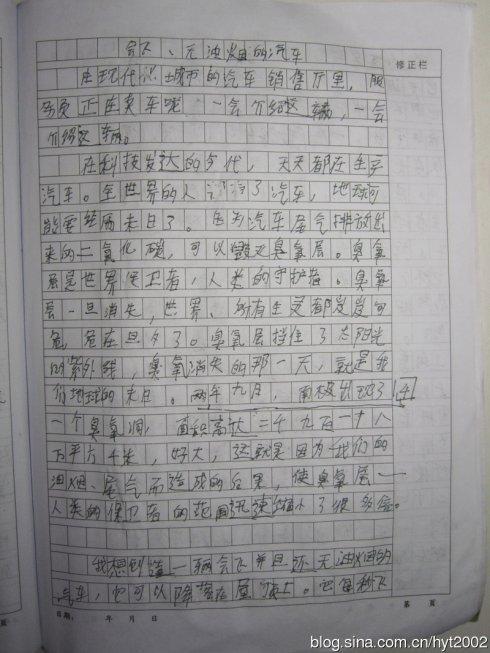 会飞、无油烟的汽车
修正栏
在现代 城市的汽车销售厅里,服
务员正在卖车呢 一会介绍这辆,一会
介绍这辆。
在科技发达的今代,天天都在生产
汽车。全世界的人 了汽车,地球可
能要经历末日了。因为汽车尾气排放出
来的二氧化碳,可以毁灭臭氧层。臭氧
层是世界保卫者,人类的守护者。臭氧
层一旦消失,世界、所有生灵都岌岌可
危,危在旦夕了。臭氧层挡住了太阳光
的紫外线,臭氧消失的那一天,就是我
们地球的末日。 年九月,南极出现了
一个臭氧洞,面积高达二千九百一十八
万平方千米,好大,这就是因为我们的
油烟、尾气而造成的后果,使臭氧层一
人类的保卫者的范围迅速缩小了很多倍。
我想创造一辆会飞并且还无油烟的
汽车,它可以降落在屋顶上。它每秒飞
日期: 年 月 日
第 页
blog.sina.com.cn/hyt2002